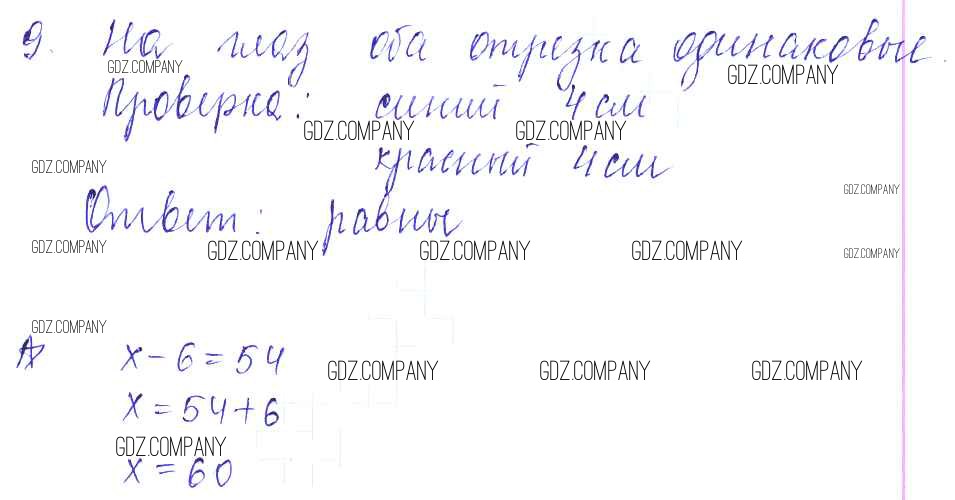 9. На глаз оба отрезка одинаковые.
GDZ.COMPANY GDZ.COMPANY
Проверка: синий 4 см
GDZ.COMPANY GDZ.COMPANY
GDZ.COMPANY красный 4 см
GDZ.COMPANY
Ответ: равны
GDZ.COMPANY GDZ.COMPANY GDZ.COMPANY GDZ.COMPANY GDZ.COMPANY
GDZ.COMPANY
x - 6 = 54
GDZ.COMPANY GDZ.COMPANY GDZ.COMPANY
x = 54 + 6
GDZ.COMPANY
x = 60